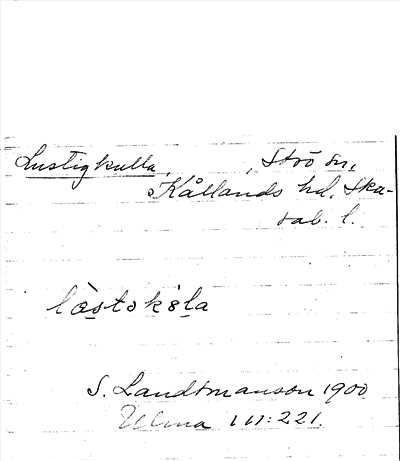 Lustigkulla, , Strö sn,
Kållands hd, Ska-
rab. l.
lòstokəla
S. Landtmanson 1900
Ulma 111:221.